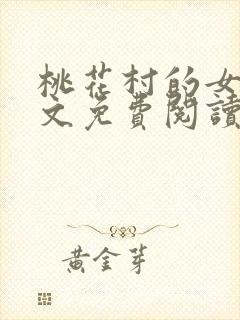 桃花村的女
文免費閱讀
黃金芽